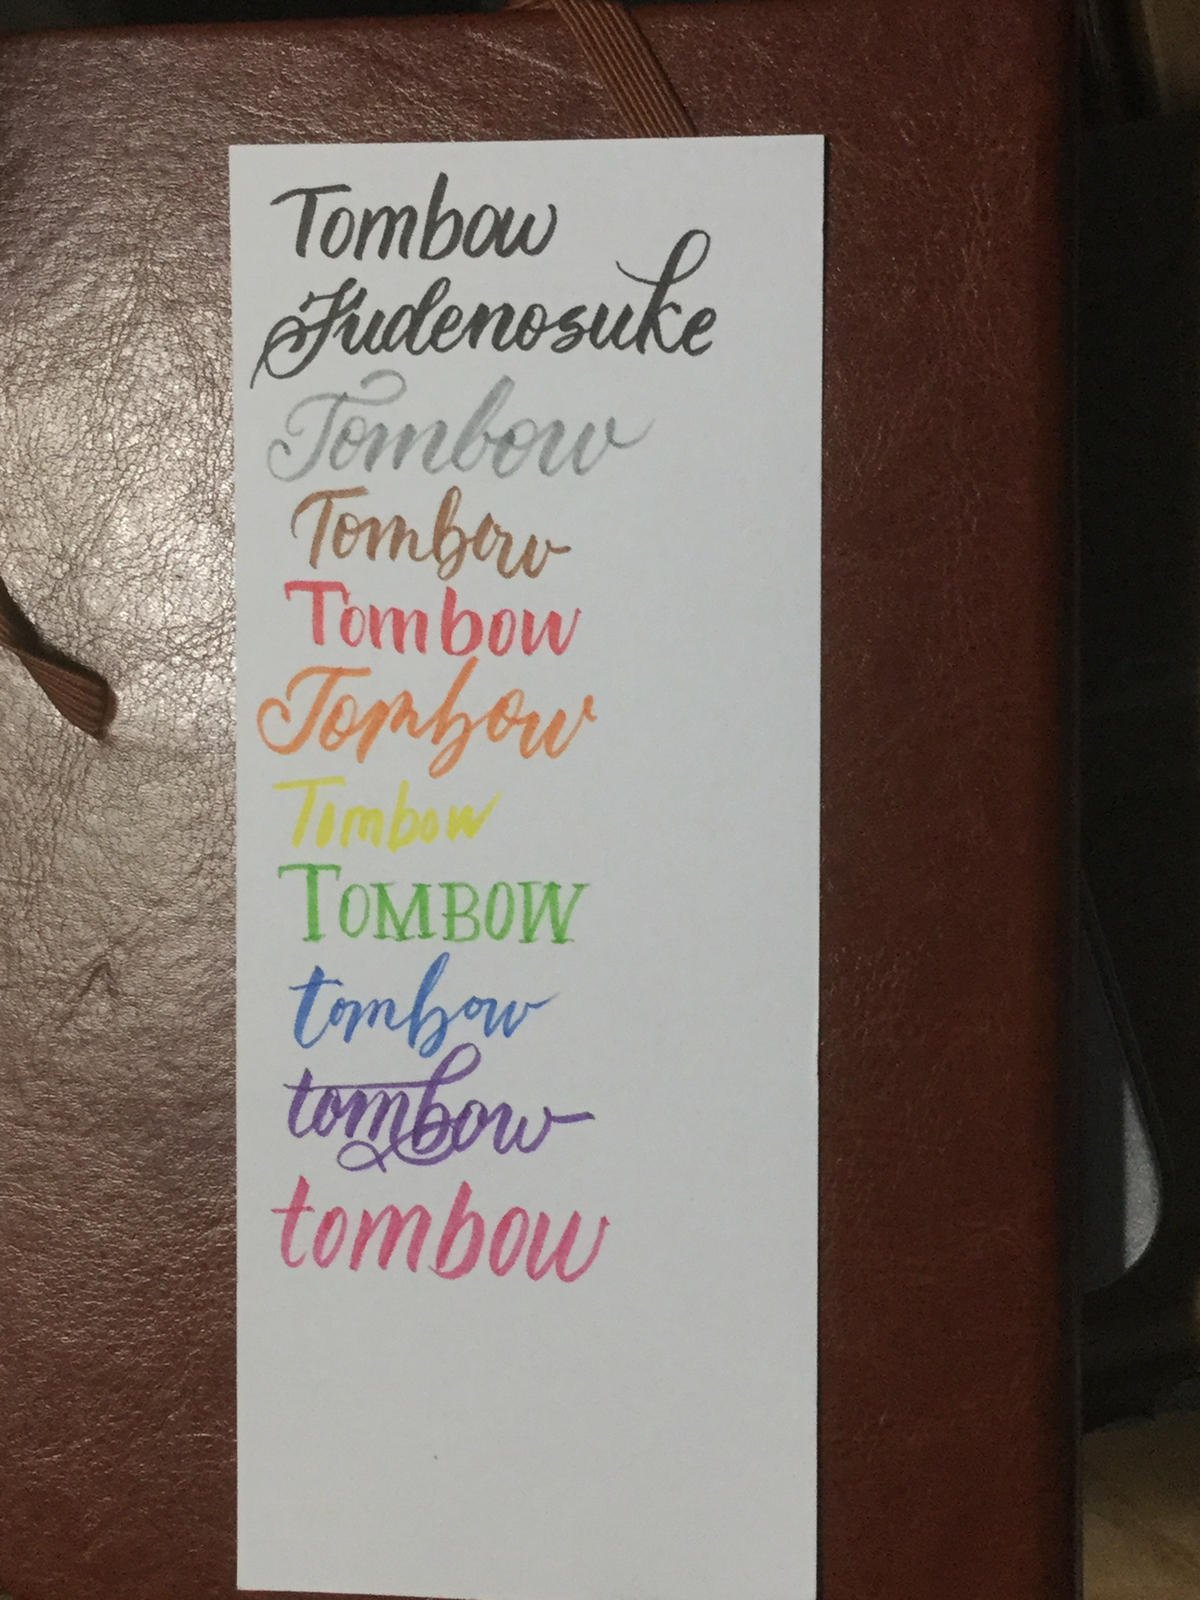 Tombow
Fudenosuke
Tombow
Tombow
Tombow
Tombow
Tombow
TOMBOW
tombow
tombow
tombow